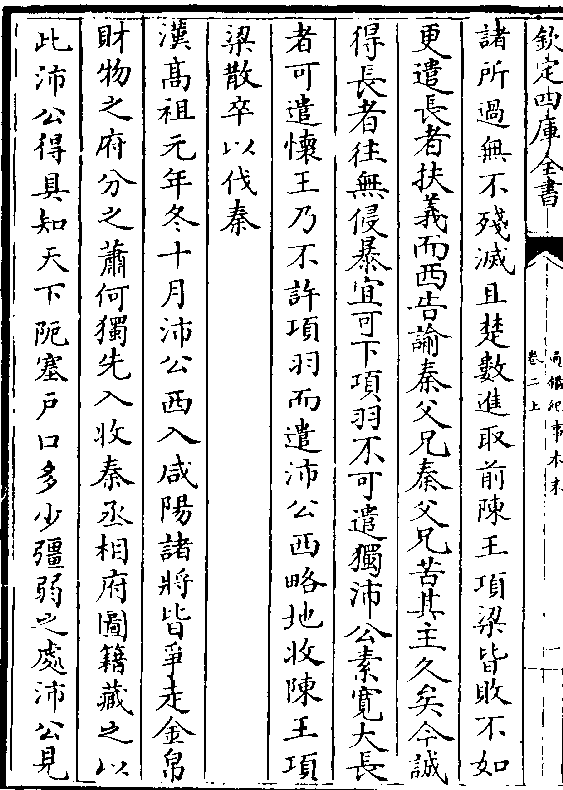 欽定四庫全書
通鑑紀事本末
卷二上
諸所過無不殘滅且楚數進取前陳王項梁皆敗不如
更遣長者扶義而西告諭秦父兄秦父兄苦其主久矣今誠
得長者往無侵暴宜可下項羽不可遣獨沛公素寛大長
者可遣懷王乃不許項羽而遣沛公西略地收陳王項
梁散卒以伐秦
漢髙祖元年冬十月沛公西入咸陽諸將皆爭走金帛
財物之府分之蕭何獨先入收秦丞相府圖籍藏之以
此沛公得具知天下阨塞戸口多少彊弱之處沛公見